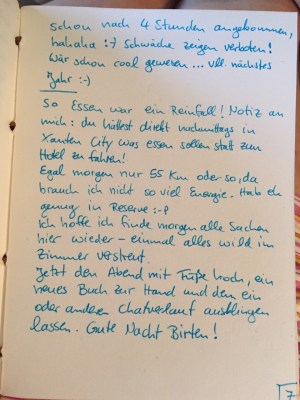 schon nach 4 Stunden angekommen,
hahaha :-) Schwäche zeigen verboten!
Wär schon cool gewesen... vll. nächstes
Jahr :-)
So Essen war ein Reinfall! Notiz an
mich: du hättest direkt nachmittags in
Xanten City was essen sollen statt zum
Hotel zu fahren!
Egal morgen nur 55 Km oder so, da
brauch ich nicht so viel Energie. Hab eh
genug in Reserve :-P
Ich hoffe ich finde morgen alle Sachen
hier wieder - einmal alles wild im
Zimmer verstreut.
Jetzt den Abend mit Füße hoch, ein
neues Buch zur Hand und den ein
oder anderen Chatverlauf ausklingen
lassen. Gute Nacht Birten!
7